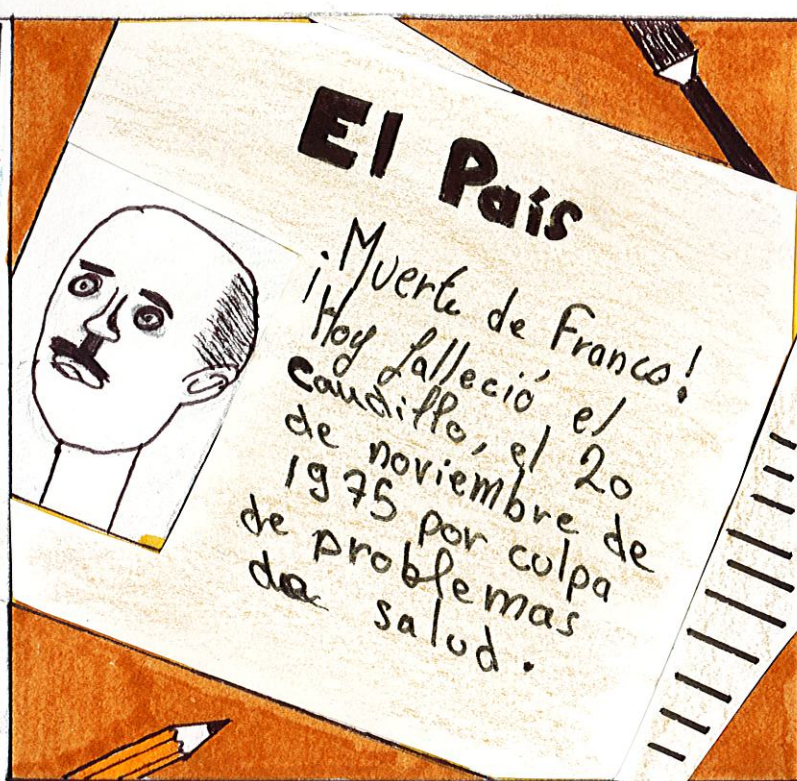 El País
¡Muerte de Franco!
Hoy falleció el
caudillo, el 20
de noviembre de
1975 por culpa
de problemas
de salud.